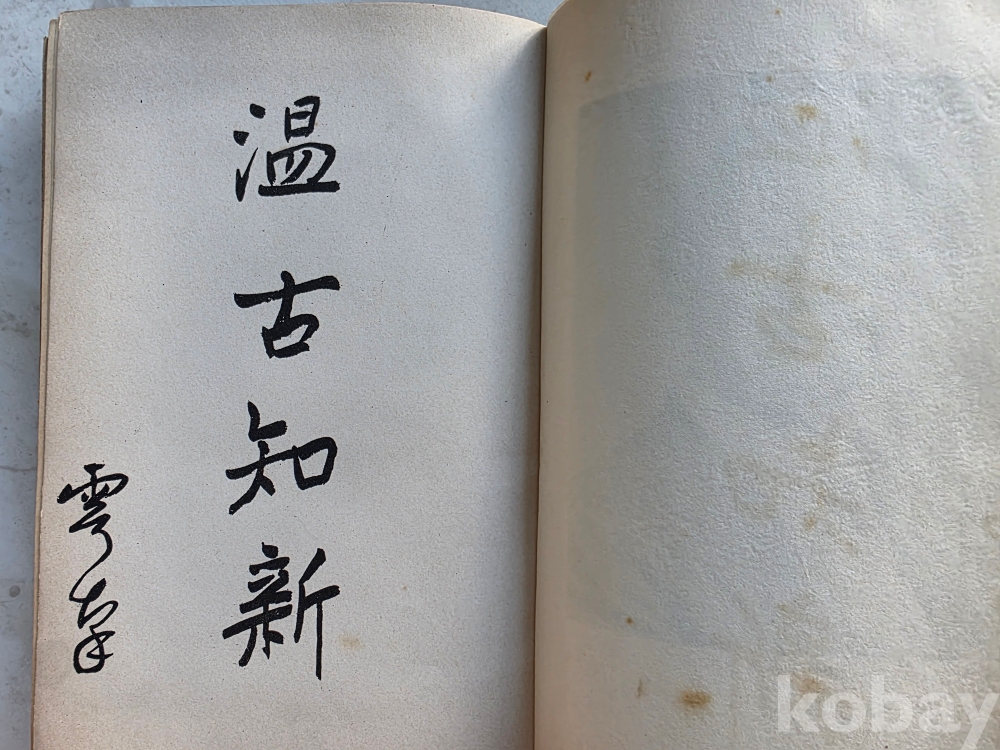 温古知新
雩
kobay